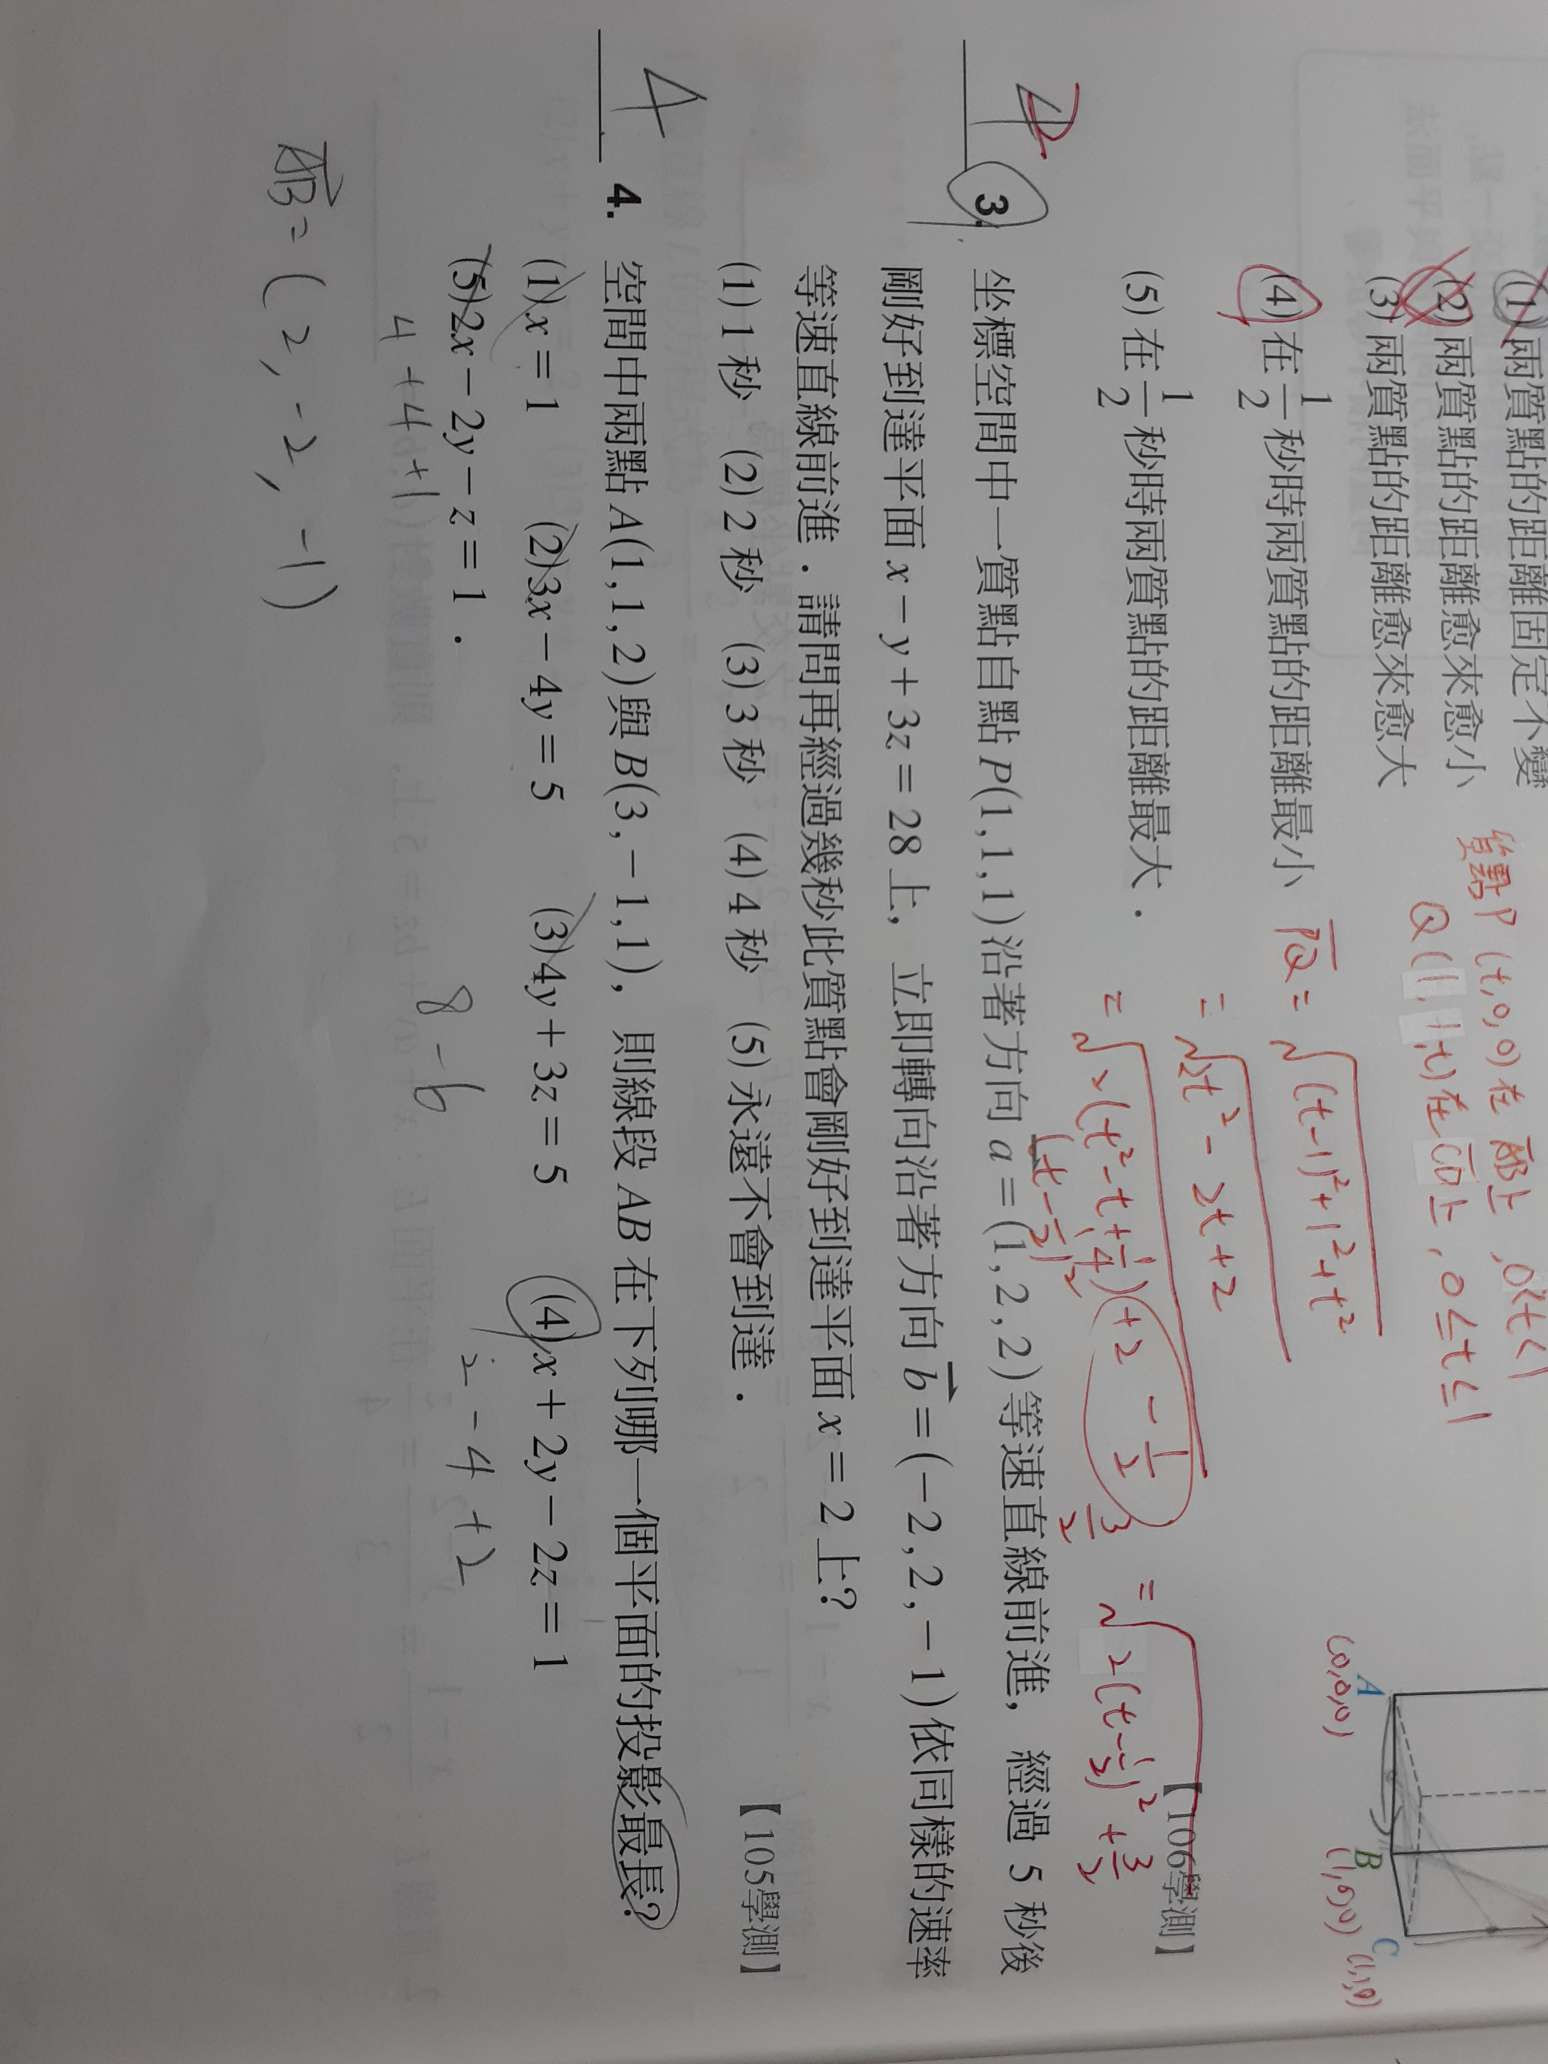 (1) 兩質點的距離固定不變
(2) 兩質點的距離愈來愈小
(3) 兩質點的距離愈來愈大
(4) 在 1/2 秒時兩質點的距離最小
(5) 在 1/2 秒時兩質點的距離最大．
【106學測】
質點P (t,0,0) 在 AB上 , 0≤t≤1
Q (1,1,t) 在 CD上 , 0≤t≤1
PQ = √((t-1)²+1²+t²)
= √(2t²-2t+2)
= √(2(t²-t+1/4)+2-1/2)
(t-1/2)²
3/2
= √(2(t-1/2)²+3/2)
A
(0,0,0)
B
(1,0,0)
C
(1,1,0)
4
3. 坐標空間中一質點自點 P(1,1,1)沿著方向 a=(1,2,2)等速直線前進，經過 5 秒後
剛好到達平面 x−y+3z=28 上，立即轉向沿著方向 b=(−2,2,−1)依同樣的速率
等速直線前進．請問再經過幾秒此質點會剛好到達平面 x=2 上？
(1) 1 秒 (2) 2 秒 (3) 3 秒 (4) 4 秒 (5) 永遠不會到達．
【105學測】
4
4. 空間中兩點 A(1,1,2)與 B(3,−1,1)，則線段 AB 在下列哪一個平面的投影最長？
(1) x=1 (2) 3x−4y=5 (3) 4y+3z=5 (4) x+2y−2z=1
(5) 2x−2y−z=1．
2-4+2
8-6
4+4+1
AB=(2,-2,-1)